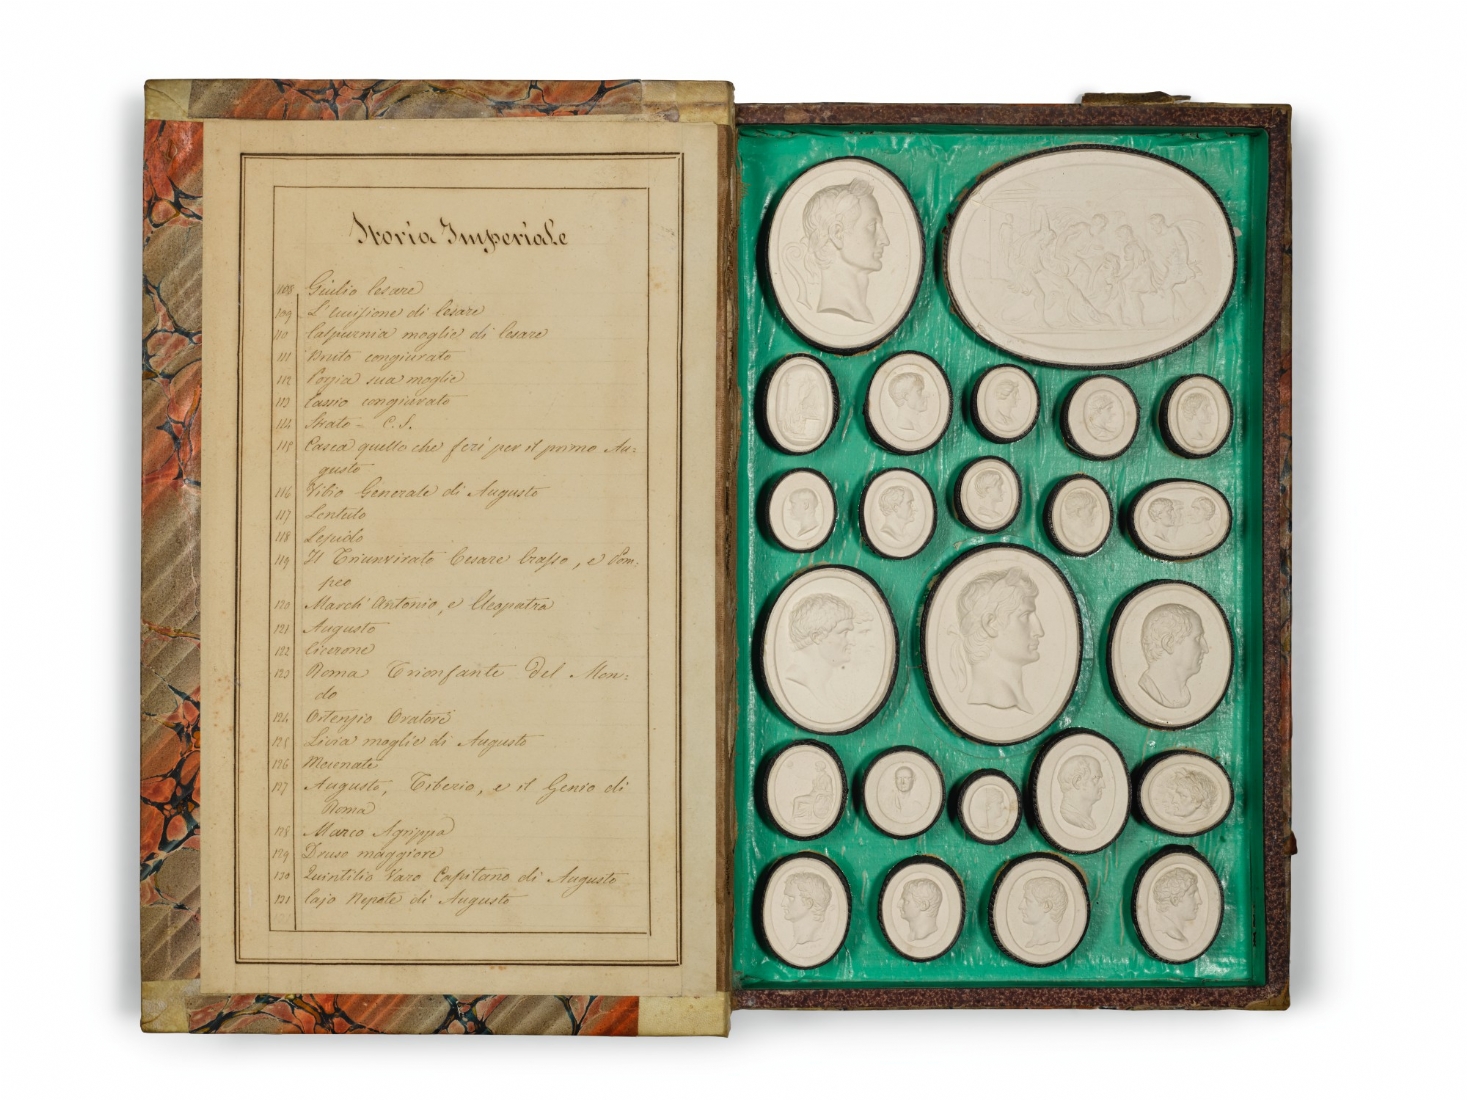 Storia Imperiale
108 Giulio Cesare
109 L'uccisione di Cesare
110 Calpurnia moglie di Cesare
111 Bruto congiurato
112 Porzia sua moglie
113 Cassio congiurato
114 C. S.
115 Casca quello che ferì per il primo Au:
gusto
116 Generale di Augusto
117 Lentulo
118 Lepido
119 Il Triunvirato Cesare Crasso, e Pom:
peo
120 March' Antonio, e Cleopatra
121 Augusto
122 Cicerone
123 Roma Trionfante Del Mon:
do
124 Ortensio Oratore
125 Livia moglie di Augusto
126 Mecenate
127 Augusto, Tiberio, e il Genio di
Roma
128 Marco Agrippa
129 Druso maggiore
130 Quintilio Varo Capitano di Augusto
131 Cajo Nepote di Augusto